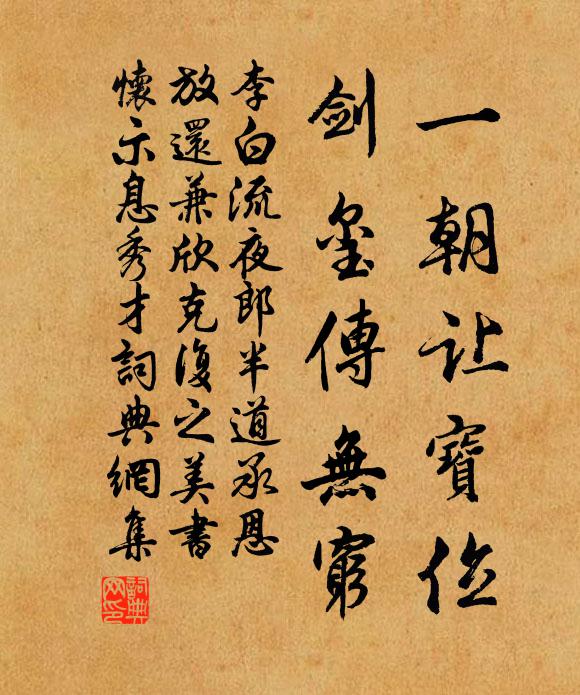 一朝让寶位
劍璽傳無窮
李白流夜郎半道承恩
放還兼欣克復之美書
懷示息秀才詞典網集
詞典网印